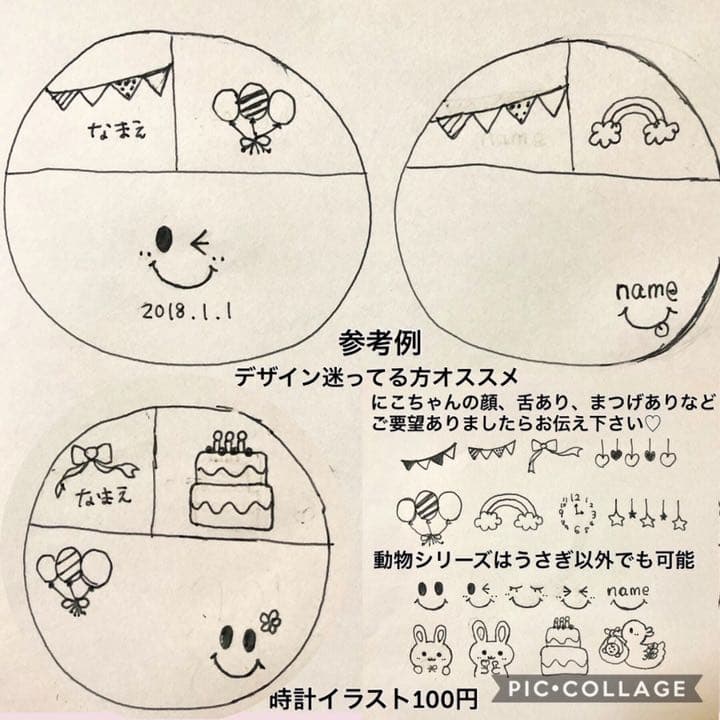 なまえ
2018.1.1
name
参考例
デザイン迷ってる方オススメ
にこちゃんの顔、舌あり、まつげありなど
ご要望ありましたらお伝え下さい♡
なまえ
12
動物シリーズはうさぎ以外でも可能
name
時計イラスト100円
PIC•COLLAGE